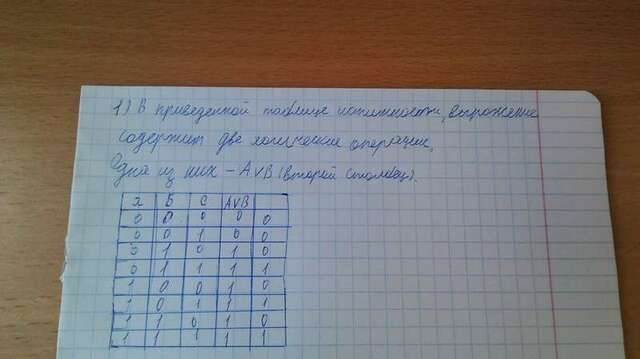 1) В приведенной таблице истинности, выражение
содержит две логические операции,
Одна из них – AVB (второй столбец).
А Б С AVB
0 0 0 0 0
0 0 1 0 0
0 1 0 1 0
0 1 1 1 1
1 0 0 1 0
1 0 1 1 1
1 1 0 1 0
1 1 1 1 1